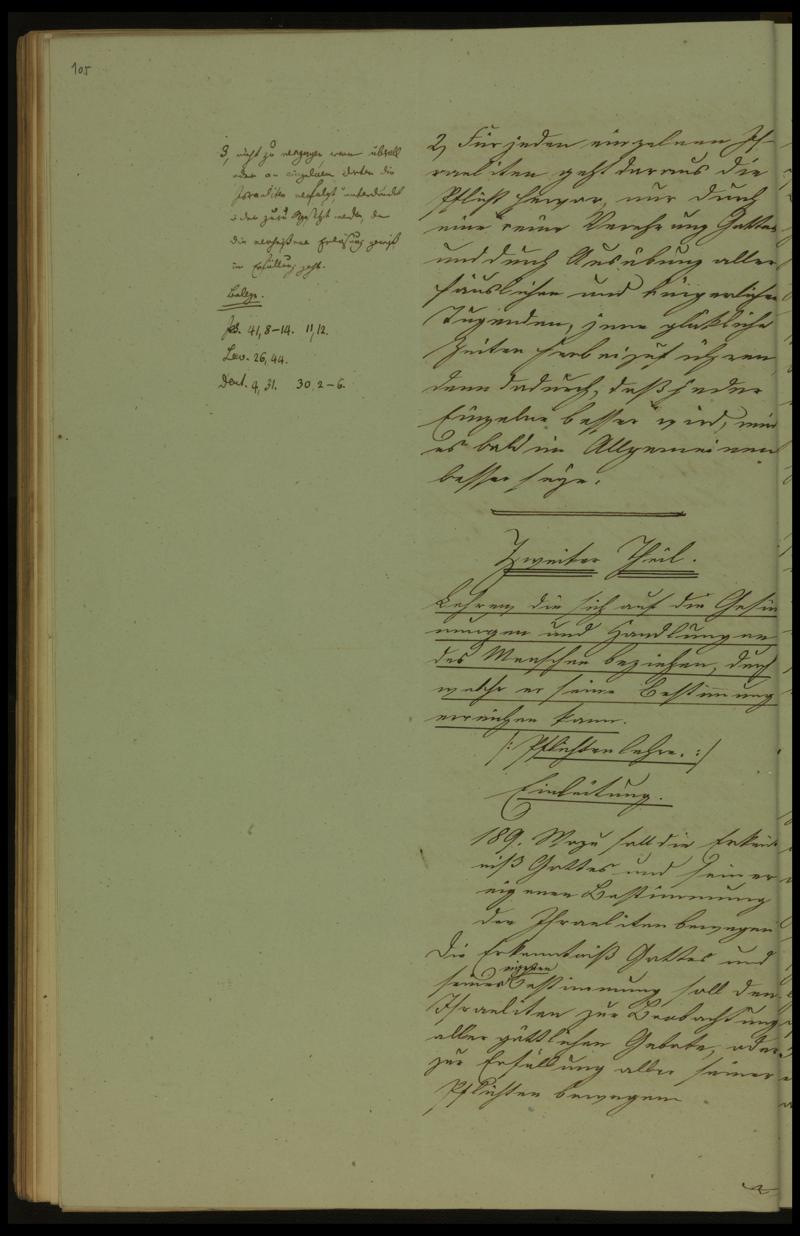 105
3, nicht zu verzagen, wenn überall
oder an einzelnen Orten die
Israeliten verfolgt, unterdrückt
oder zurückgesetzt werden, da
die verheißene Erlösung gewiß
in Erfüllung geht.
Belege.
Jes. 41, 8–14. 11,12.
Lev. 26, 44.
Deut. 4, 31. 30, 2–6.
2, Für jeden einzelnen Is-
raeliten geht daraus die
Pflicht hervor, nur durch
eine reine Verehrung Gottes
und durch Ausübung aller
häuslichen und bürgerlichen
Tugenden, jene glückliche
Zeiten herbeizuführen
denn dadurch, daß jeder
Einzelne besser wird, wird
es bald im Allgemeinen
besser seyn.
Zweiter Theil.
Lehren, die sich auf die Gesin
nungen und Handlungen
des Menschen beziehen, durch
welche er seine Bestimmung
erreichen kann.
/: Pflichtenlehre. :/
Einleitung.
189. Wozu soll die Erkent
niß Gottes und seiner
eigenen Bestimmung
den Israeliten bewegen
Die Erkenntniß Gottes und
seiner eigenen Bestimmung soll den
Israeliten zur Beobachtung
aller göttlichen Gebote, oder
zur Erfüllung aller seiner
Pflichten bewegen